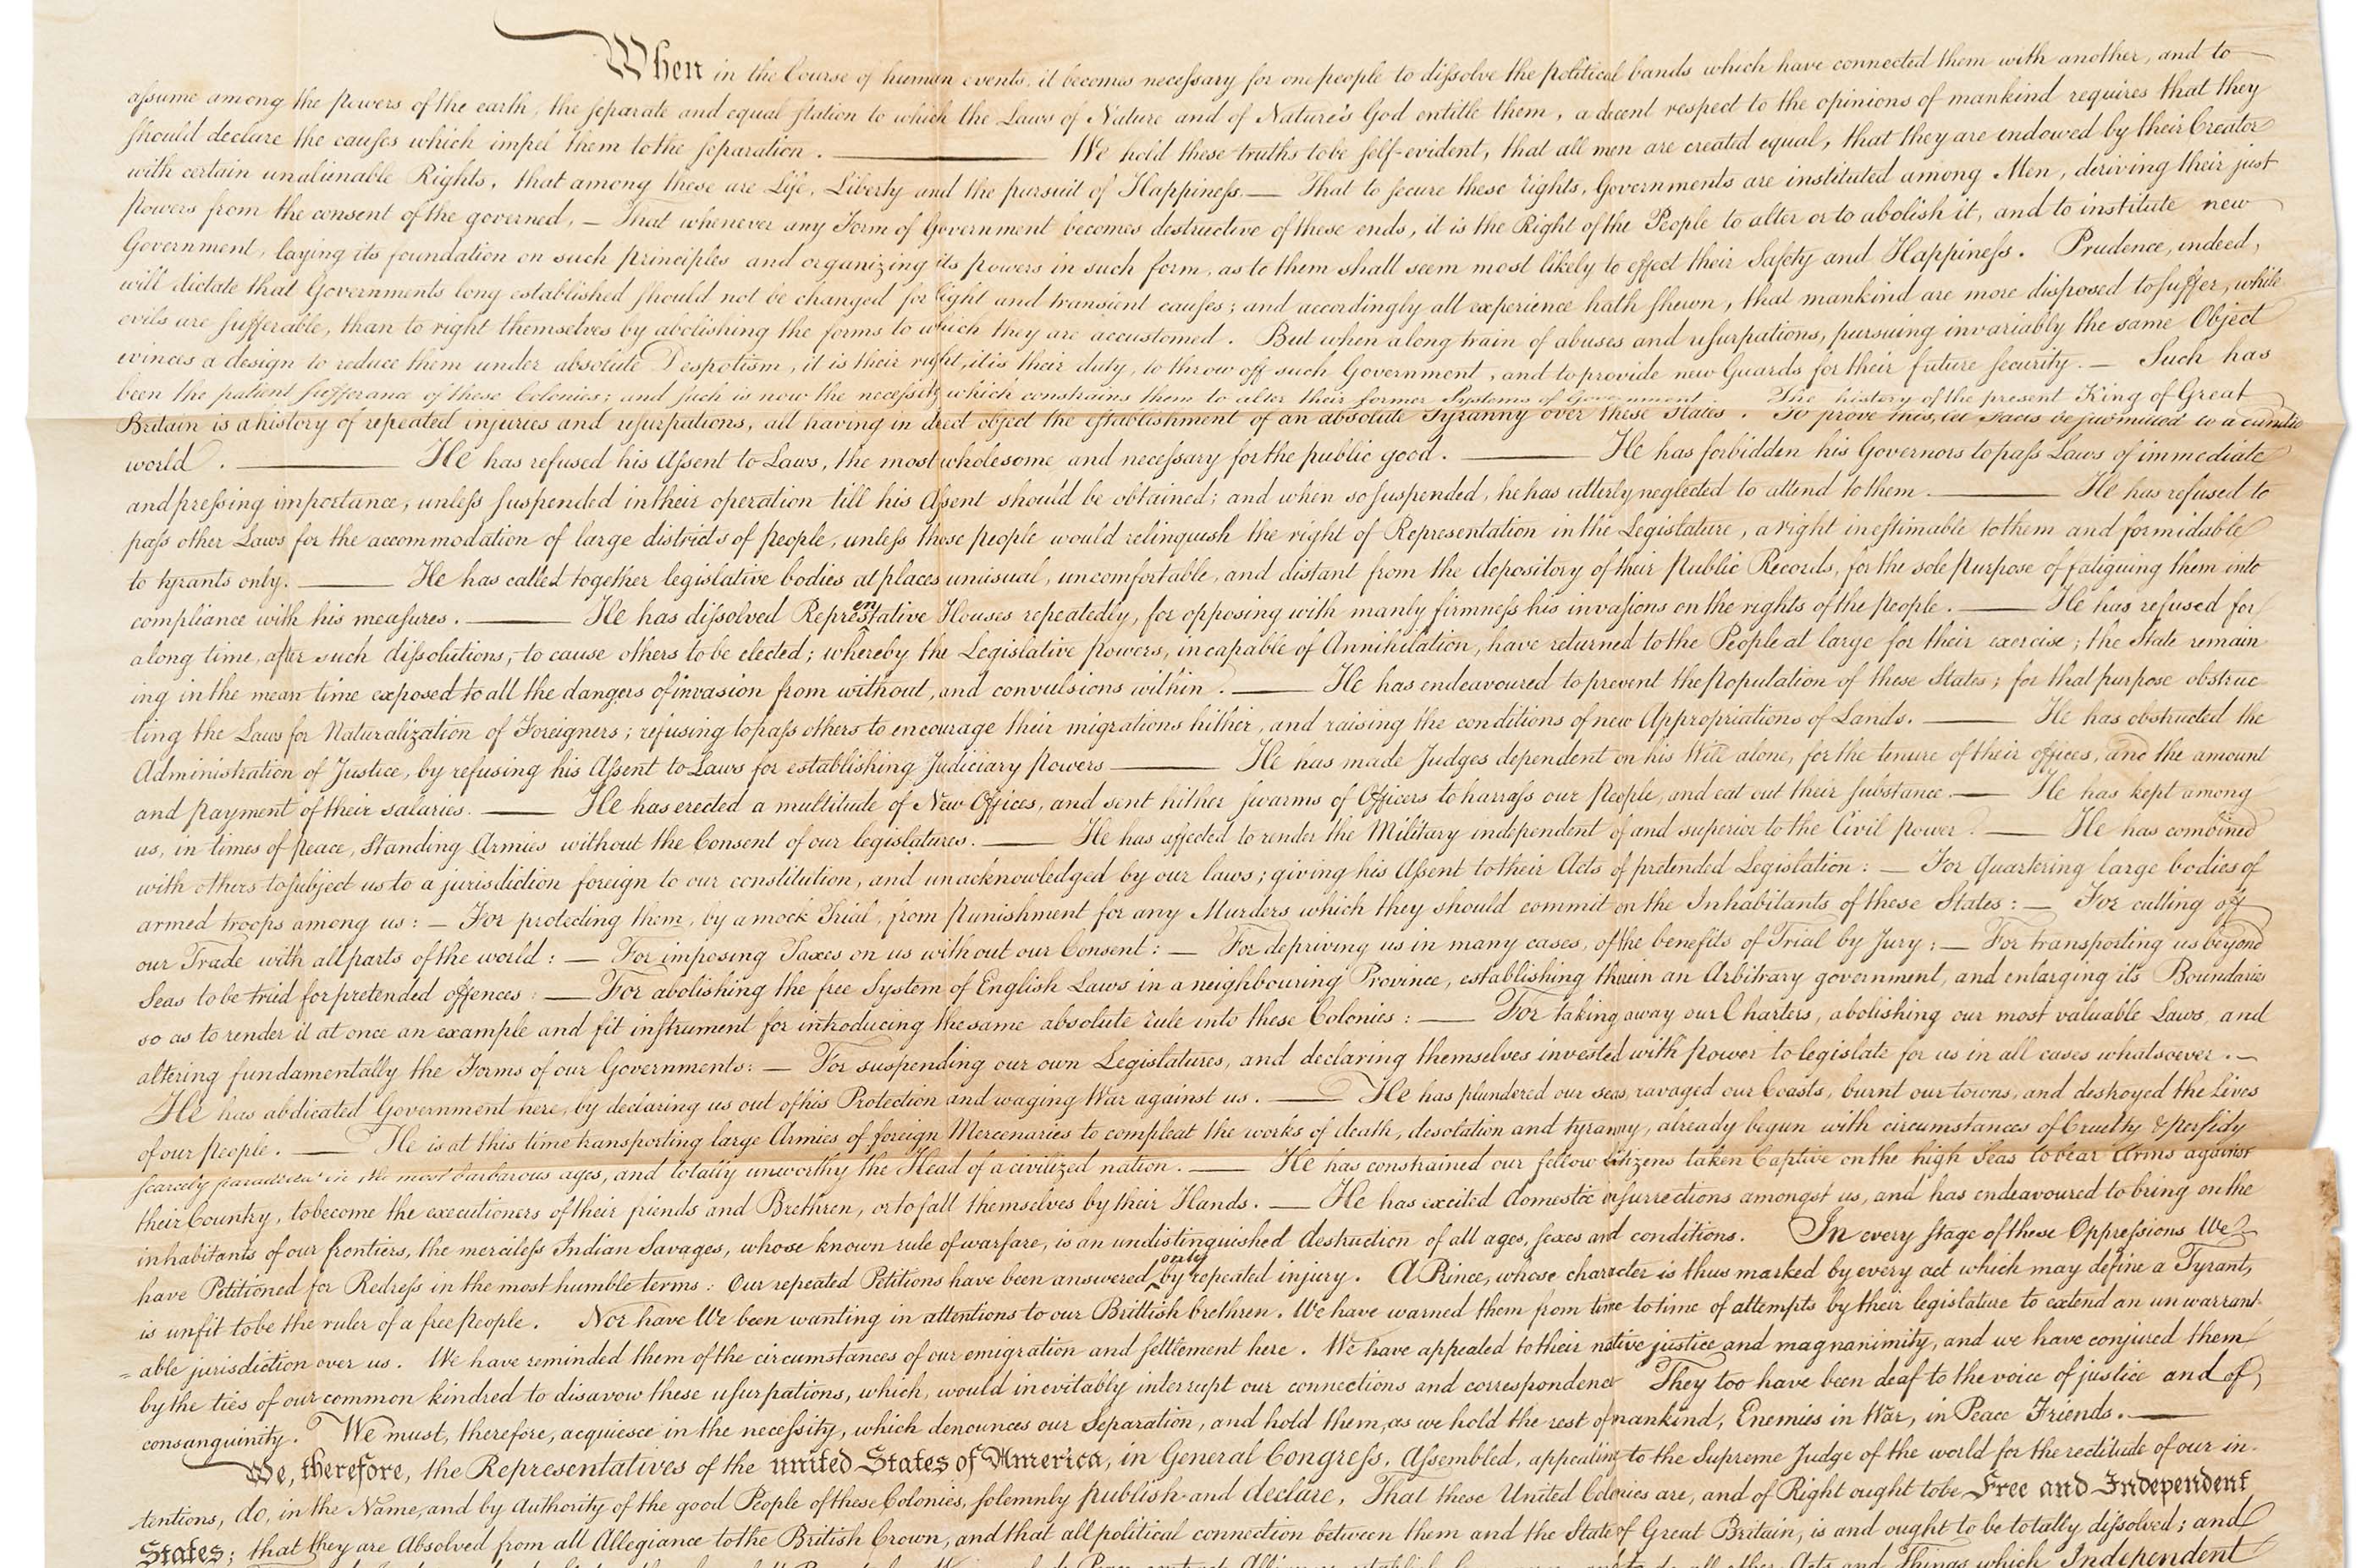 When in the Course of human events, it becomes necessary for one people to dissolve the political bands which have connected them with another, and to
assume among the powers of the earth, the separate and equal station to which the Laws of Nature and of Nature's God entitle them, a decent respect to the opinions of mankind requires that they
should declare the causes which impel them to the separation. — We hold these truths to be self-evident, that all men are created equal, that they are endowed by their Creator
with certain unalienable Rights, that among these are Life, Liberty and the pursuit of Happiness. — That to secure these rights, Governments are instituted among Men, deriving their just
powers from the consent of the governed, — That whenever any Form of Government becomes destructive of these ends, it is the Right of the People to alter or to abolish it, and to institute new
Government, laying its foundation on such principles and organizing its powers in such form, as to them shall seem most likely to effect their Safety and Happiness. Prudence, indeed,
will dictate that Governments long established should not be changed for light and transient causes; and accordingly all experience hath shewn, that mankind are more disposed to suffer, while
evils are sufferable, than to right themselves by abolishing the forms to which they are accustomed. But when a long train of abuses and usurpations, pursuing invariably the same Object
evinces a design to reduce them under absolute Despotism, it is their right, it is their duty, to throw off such Government, and to provide new Guards for their future security. — Such has
been the patient sufferance of these Colonies; and such is now the necessity which constrains them to alter their former Systems of Government. The history of the present King of Great
Britain is a history of repeated injuries and usurpations, all having in direct object the establishment of an absolute Tyranny over these States. To prove this, let Facts be submitted to a candid
world. — He has refused his Assent to Laws, the most wholesome and necessary for the public good. — He has forbidden his Governors to pass Laws of immediate
and pressing importance, unless suspended in their operation till his Assent should be obtained; and when so suspended, he has utterly neglected to attend to them. — He has refused to
pass other Laws for the accommodation of large districts of people, unless those people would relinquish the right of Representation in the Legislature, a right inestimable to them and formidable
to tyrants only. — He has called together legislative bodies at places unusual, uncomfortable, and distant from the depository of their Public Records, for the sole purpose of fatiguing them into
compliance with his measures. — He has dissolved Representative Houses repeatedly, for opposing with manly firmness his invasions on the rights of the people. — He has refused for
a long time, after such dissolutions, to cause others to be elected; whereby the Legislative powers, incapable of Annihilation, have returned to the People at large for their exercise; the State remain
ing in the mean time exposed to all the dangers of invasion from without, and convulsions within. — He has endeavoured to prevent the population of these States; for that purpose obstruc
ting the Laws for Naturalization of Foreigners; refusing to pass others to encourage their migrations hither, and raising the conditions of new Appropriations of Lands. — He has obstructed the
Administration of Justice, by refusing his Assent to Laws for establishing Judiciary powers — He has made Judges dependent on his Will alone, for the tenure of their offices, and the amount
and payment of their salaries. — He has erected a multitude of New Offices, and sent hither swarms of Officers to harrass our people, and eat out their substance. — He has kept among
us, in times of peace, Standing Armies without the Consent of our legislatures. — He has affected to render the Military independent of and superior to the Civil power. — He has combined
with others to subject us to a jurisdiction foreign to our constitution, and unacknowledged by our laws; giving his Assent to their Acts of pretended Legislation: — For Quartering large bodies of
armed troops among us: — For protecting them, by a mock Trial, from punishment for any Murders which they should commit on the Inhabitants of these States: — For cutting off
our Trade with all parts of the world: — For imposing Taxes on us without our Consent: — For depriving us in many cases, of the benefits of Trial by Jury; — For transporting us beyond
Seas to be tried for pretended offences: — For abolishing the free System of English Laws in a neighbouring Province, establishing therein an Arbitrary government, and enlarging its Boundaries
so as to render it at once an example and fit instrument for introducing the same absolute rule into these Colonies: — For taking away our Charters, abolishing our most valuable Laws, and
altering fundamentally the Forms of our Governments: — For suspending our own Legislatures, and declaring themselves invested with power to legislate for us in all cases whatsoever. —
He has abdicated Government here, by declaring us out of his Protection and waging War against us. — He has plundered our seas, ravaged our Coasts, burnt our towns, and destroyed the Lives
of our people. — He is at this time transporting large Armies of foreign Mercenaries to compleat the works of death, desolation and tyranny, already begun with circumstances of Cruelty & perfidy
scarcely paralleled in the most barbarous ages, and totally unworthy the Head of a civilized nation. — He has constrained our fellow Citizens taken Captive on the high Seas to bear Arms against
their Country, to become the executioners of their friends and Brethren, or to fall themselves by their Hands. — He has excited domestic insurrections amongst us, and has endeavoured to bring on the
inhabitants of our frontiers, the merciless Indian Savages, whose known rule of warfare, is an undistinguished destruction of all ages, sexes and conditions. In every stage of these Oppressions We
have Petitioned for Redress in the most humble terms: Our repeated Petitions have been answered only by repeated injury. A Prince, whose character is thus marked by every act which may define a Tyrant,
is unfit to be the ruler of a free people. Nor have We been wanting in attentions to our Brittish brethren. We have warned them from time to time of attempts by their legislature to extend an unwarrant-
= able jurisdiction over us. We have reminded them of the circumstances of our emigration and settlement here. We have appealed to their native justice and magnanimity, and we have conjured them
by the ties of our common kindred to disavow these usurpations, which, would inevitably interrupt our connections and correspondence They too have been deaf to the voice of justice and of
consanguinity. We must, therefore, acquiesce in the necessity, which denounces our Separation, and hold them, as we hold the rest of mankind, Enemies in War, in Peace Friends. —
We, therefore, the Representatives of the united States of America, in General Congress, Assembled, appealing to the Supreme Judge of the world for the rectitude of our in-
tentions, do, in the Name, and by Authority of the good People of these Colonies, solemnly publish and declare, That these United Colonies are, and of Right ought to be Free and Independent
States; that they are Absolved from all Allegiance to the British Crown, and that all political connection between them and the State of Great Britain, is and ought to be totally dissolved; and
to do all other Acts and Things which Independent